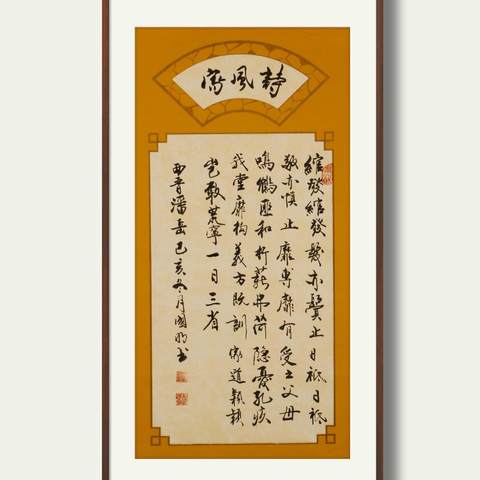 家風詩
綰發綰發髮亦鬢止日祗日祗
敬亦慎止靡專靡有受之父母
鳴鶴匪和析薪弗荷隱憂孔疚
我堂靡構義方既訓家道穎穎
豈敢荒寧一日三省
西晉潘岳己亥冬月國明書